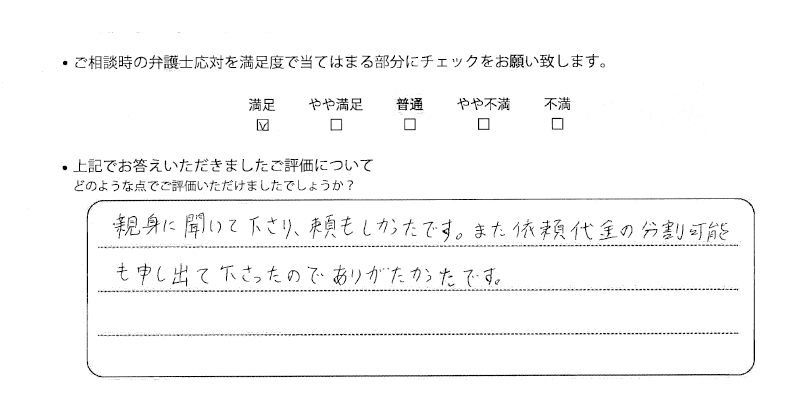 • ご相談時の弁護士応対を満足度で当てはまる部分にチェックをお願い致します。
満足 やや満足 普通 やや不満 不満
☑ □ □ □ □
• 上記でお答えいただきましたご評価について
どのような点でご評価いただけましたでしょうか？
親身に聞いて下さり、頼もしかったです。また依頼代金の分割可能を
も申し出て下さったのでありがたかったです。